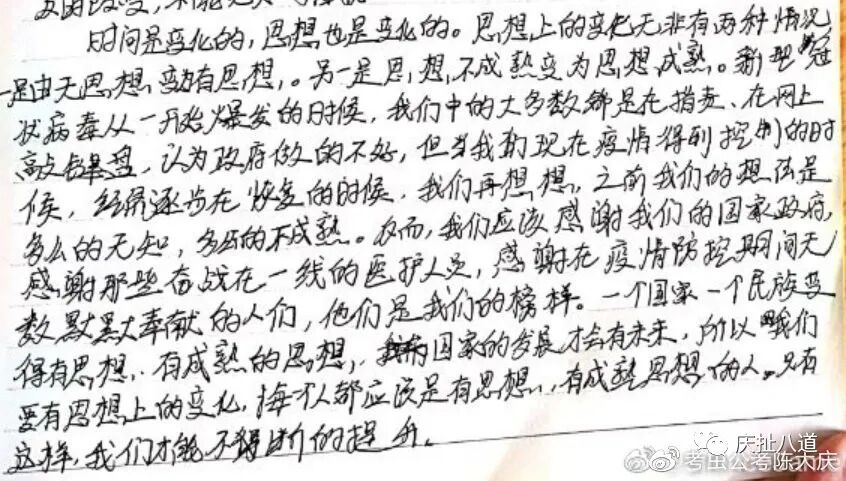 时间是变化的，思想也是变化的。思想上的变化无非有两种情况
一是由无思想，变为有思想，。另一是思，想，不成熟变为思想成熟。新型冠
状病毒从一开始爆发的时候，我们中的大多数都是在指责、在网上
敲键盘，认为政府做的不好，但当我们现在疫情得到控制的时
候，经济逐步在恢复的时候，我们再想想，之前我们的想法是
多么的无知，多么的不成熟。反而，我们应该感谢我们的国家政府，
感谢那些奋战在一线的医护人员，感谢在疫情防控期间无
数默默奉献的人们，他们是我们的榜样。一个国家一个民族变
得有思想，有成熟的思想，国家的发展才会有未来，所以我们
要有思想上的变化，每个人都应该是有思想，有成熟思想的人。只有
这样，我们才能不断的提升。
庆扯八道
考虫公考陈大庆